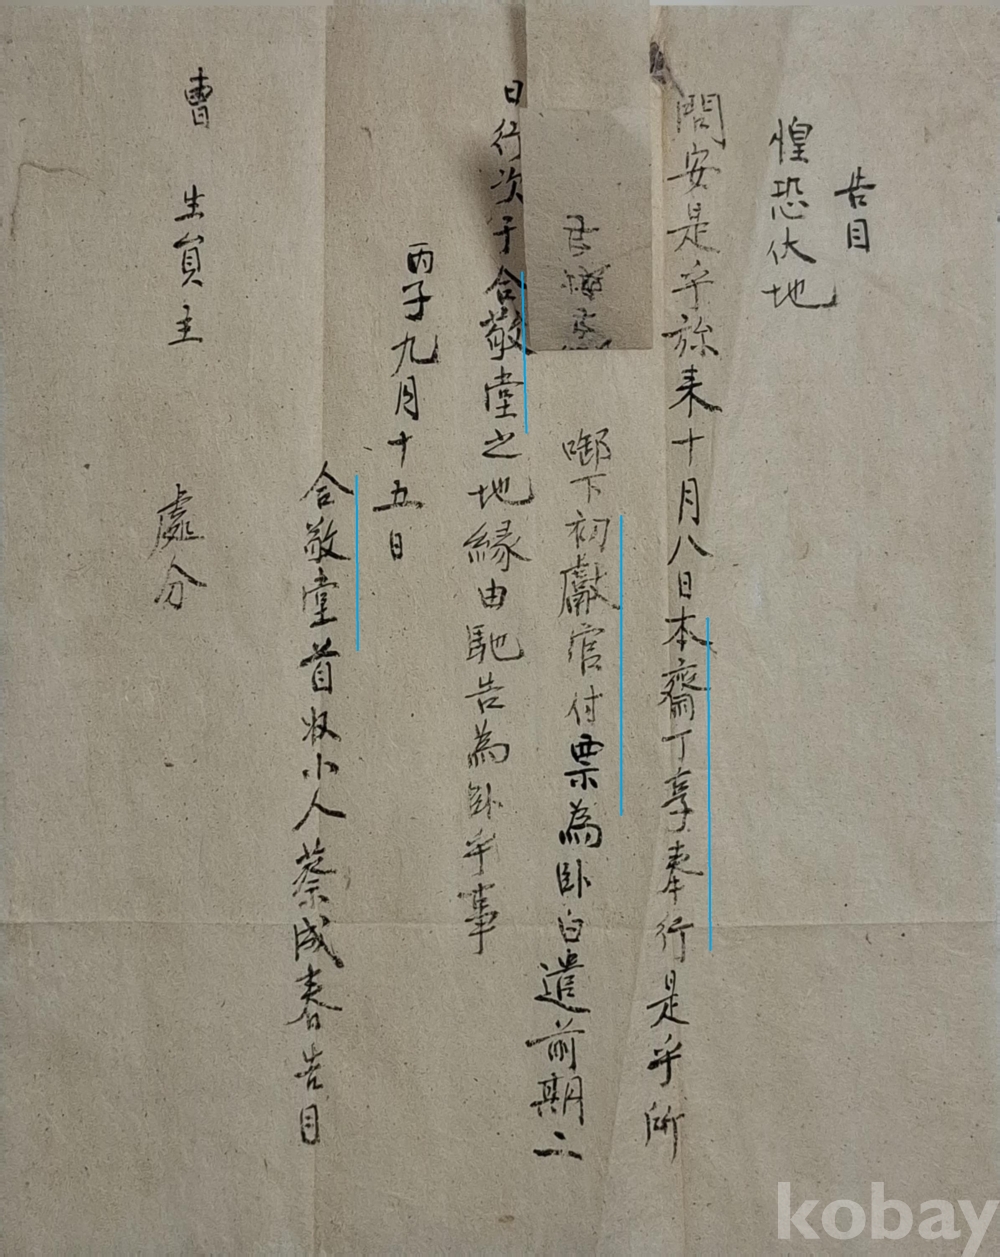 告目
惶恐伏地
問安是乎旀来十月八日本齋丁享奉行是乎所
啣下初獻官付票為卧白遣前期二
日行次于合敬堂之地縁由馳告為卧乎事
丙子九月十五日
合敬堂首奴小人蔡成春告目
曺
生員主
處分
kobay